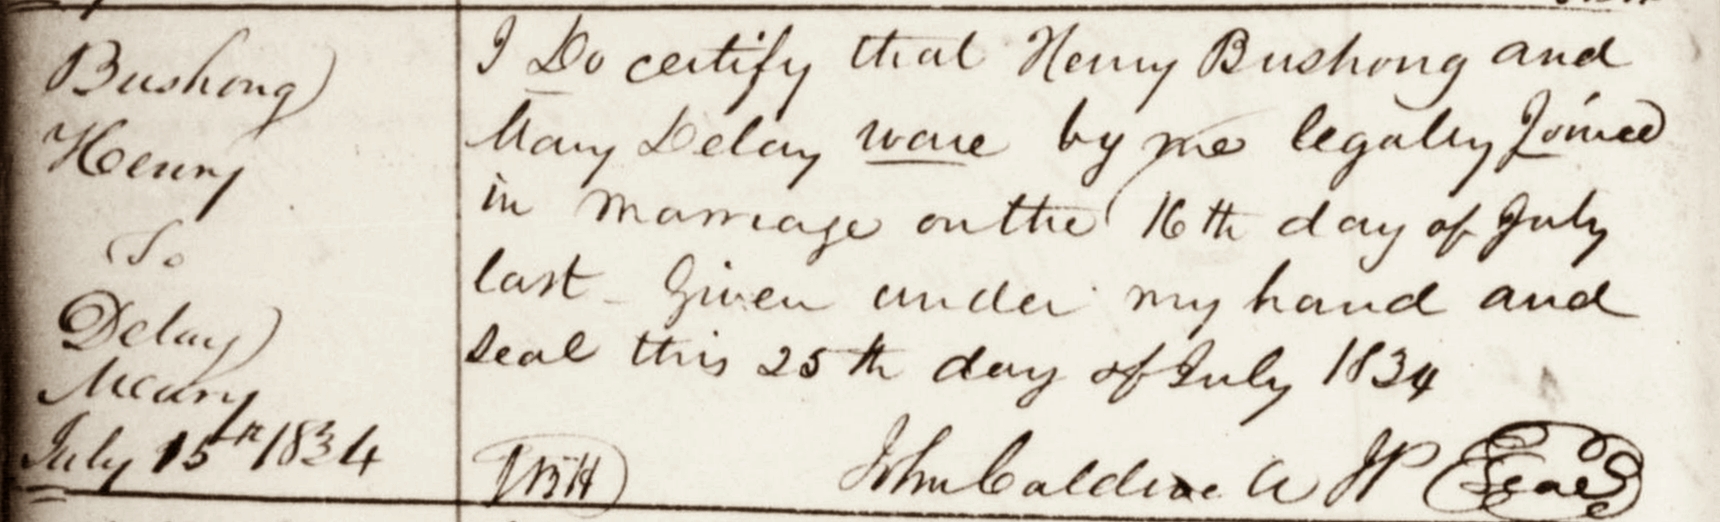 Bushong
Henry
To
Delay
Mary
July 15th 1834
I Do certify that Henry Bushong and
Mary Delay ware by me legally Joined
in marriage on the 16th day of July
last Given under my hand and
Seal this 25th day of July 1834
John a JP Seal